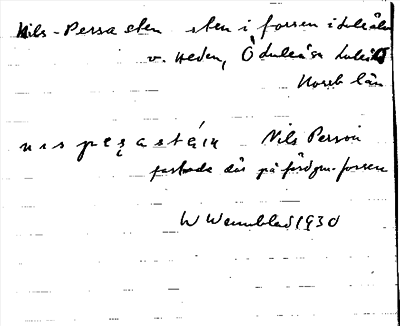 Nils-Perssa sten sten i forsen i Luleälv
v. Heden, Ö Luleå sn Luleå
Norrb län
Nils Person
fastnade där på färd gm forsen
W Wennblad 1930